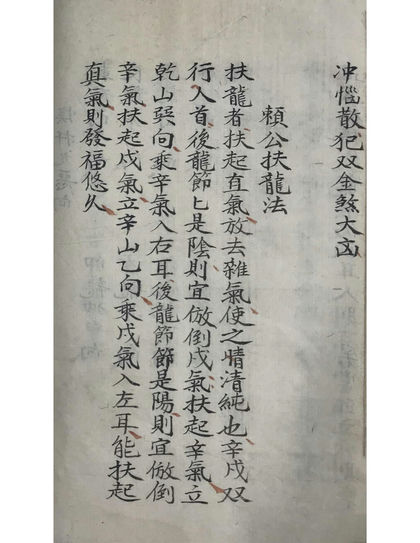 冲惱散犯双金煞大凶
賴公扶龍法
扶龍者扶起直氣放去雜氣使之晴清純也辛戌双
行入首後龍節匕是陰則宜倣倒戌氣扶起辛氣立
乾山巽向乘辛氣入右耳後龍節節是陽則宜倣倒
辛氣扶起戌氣立辛山乙向乘戌氣入左耳能扶起
真氣則發福悠久